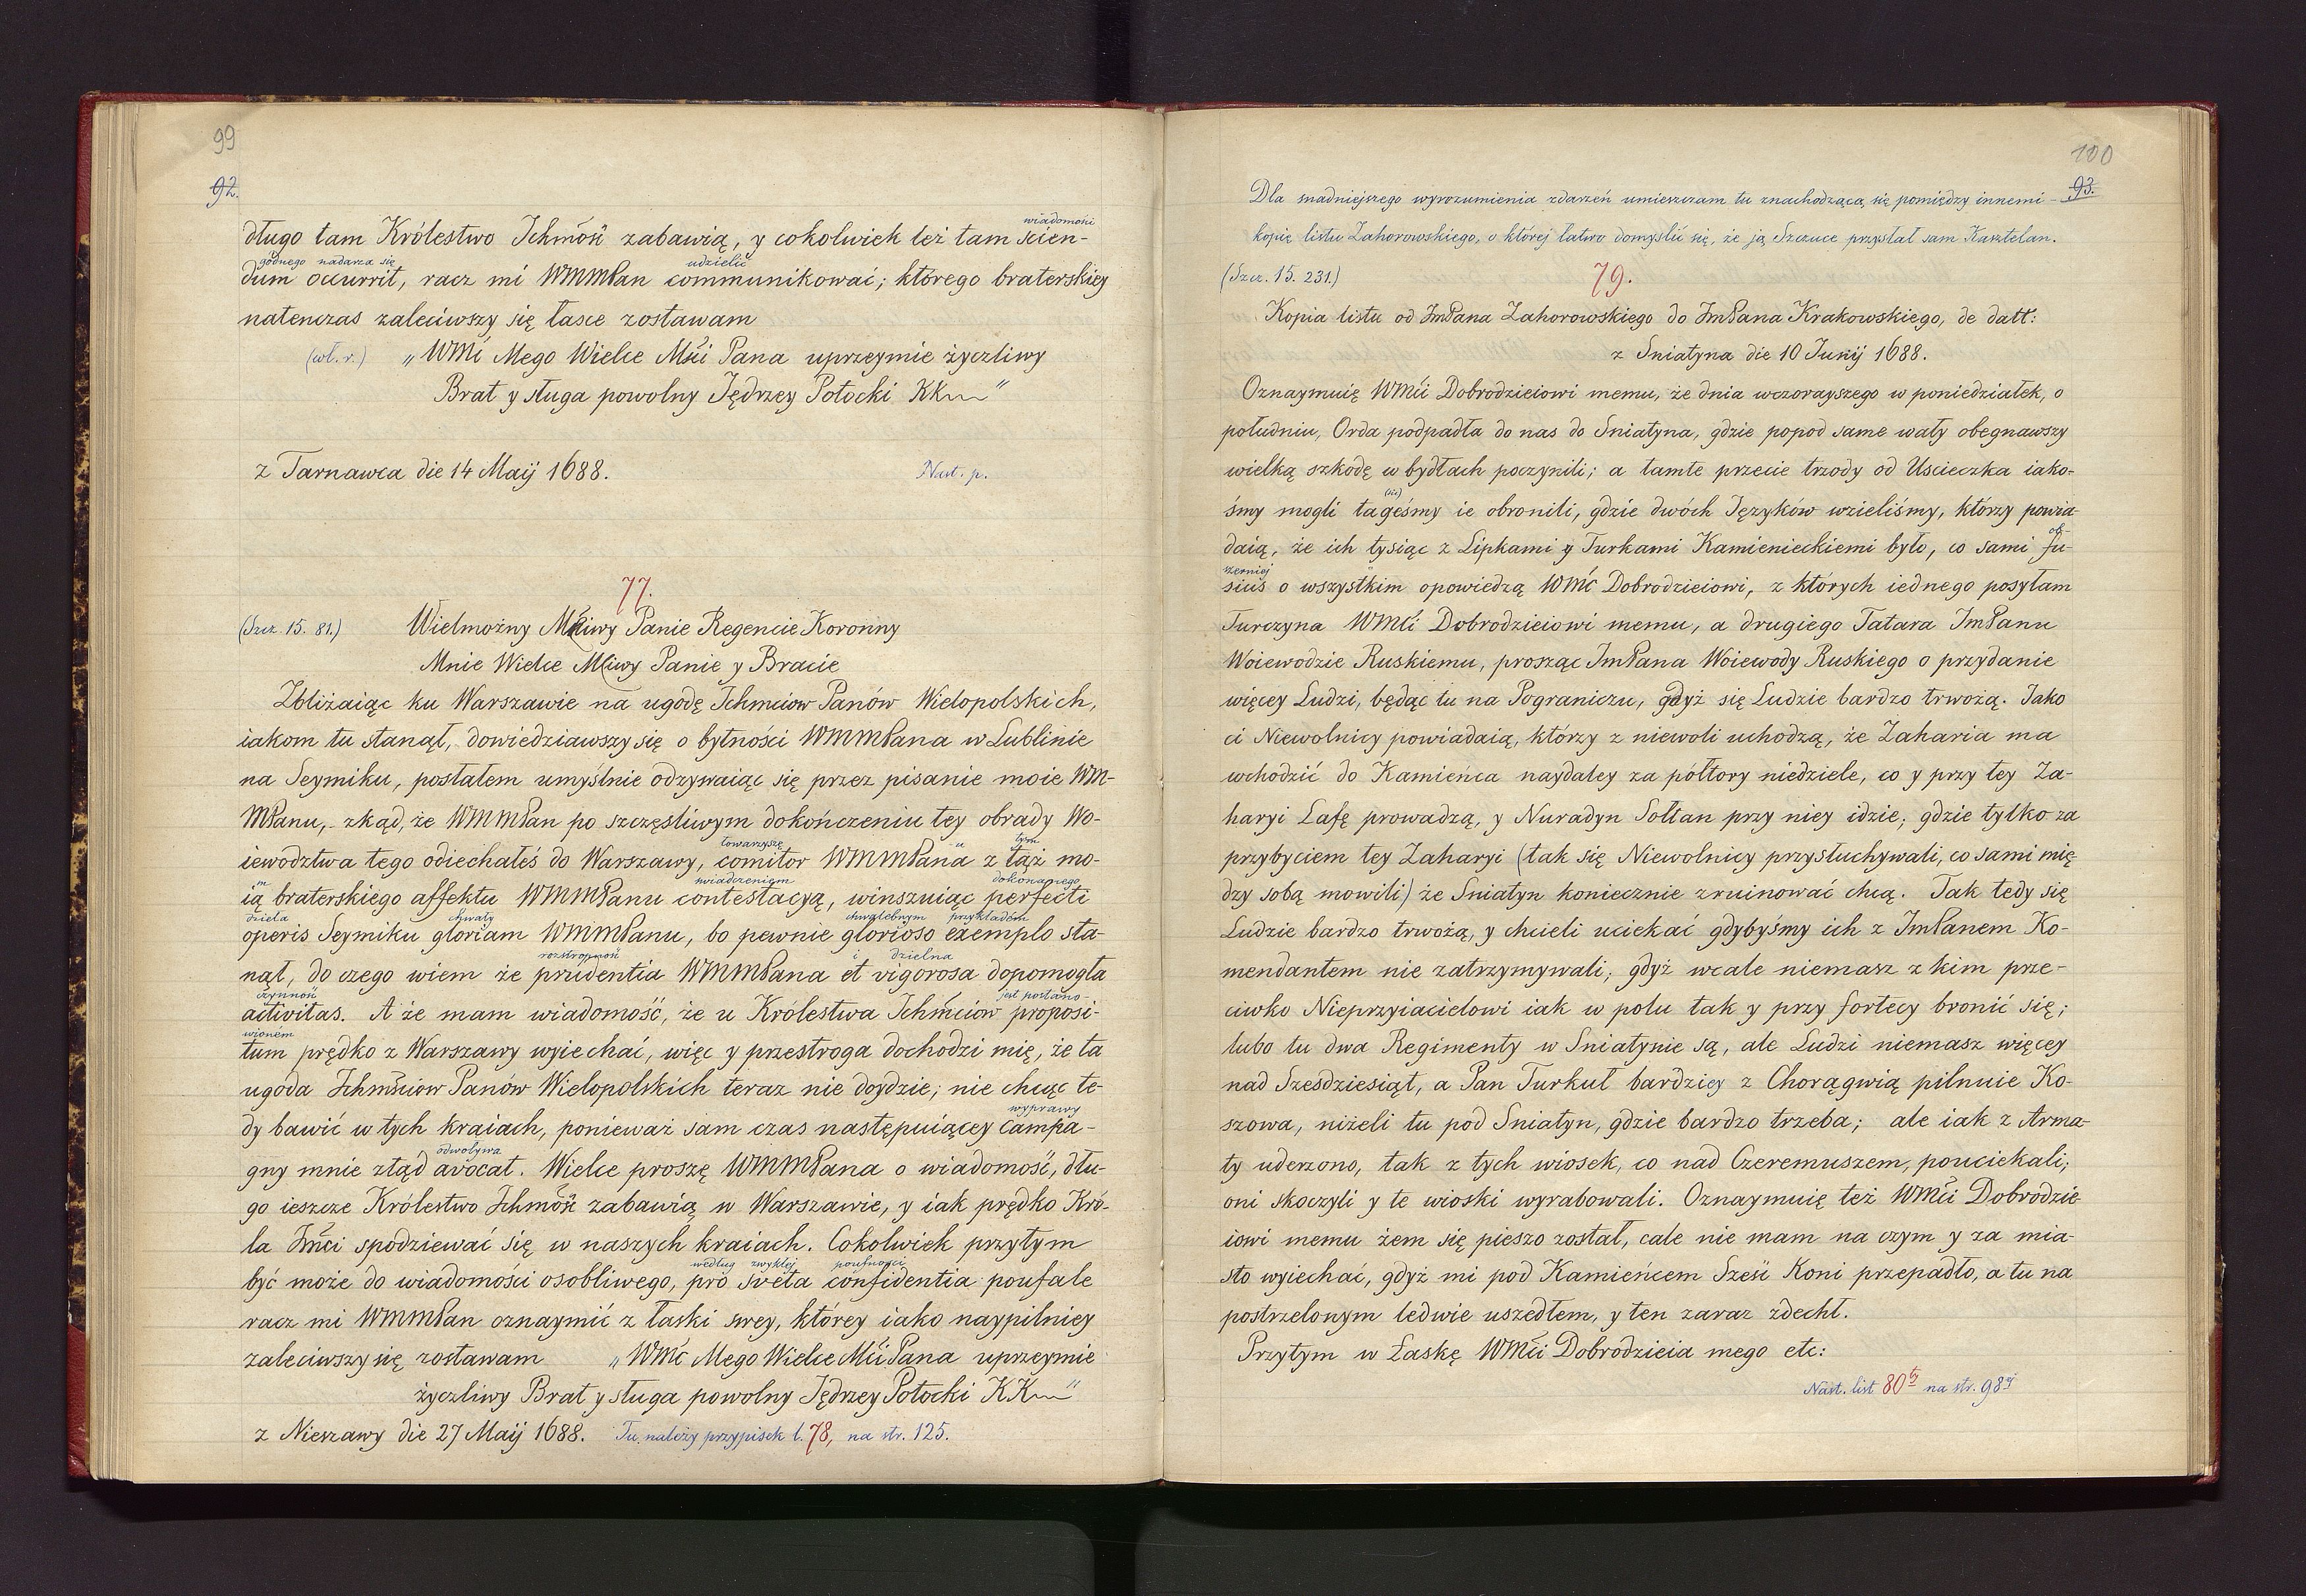 99
92.
wiadomości
długo tam Królestwo Ichmość zabawią, y cokolwiek też tam scien-
godnego nadarza się udzielić
dum occurrit, racz mi WMMPan communikować; którego braterskiey
natenczas zaleciwszy się łasce zostawam
(wł. r.) „WMć Mego Wielce Mści Pana uprzeymie życzliwy
Brat y sługa powolny Jędrzey Potocki KK"
z Tarnawca die 14 Maij 1688. Nast. p.
77.
(Szcz. 15. 81.) Wielmożny Mściwy Panie Regencie Koronny
Mnie Wielce Mściwy Panie y Bracie
Zbliżaiąc ku Warszawie na ugodę Ichmciow Panów Wielopolskich,
iakom tu stanął, dowiedziawszy się o bytności WMMPana w Lublinie
na Seymiku, posłałem umyślnie odzywaiąc się przez pisanie moie WM-
MPanu, zkąd, że WMMPan po szczęśliwym dokończeniu tey obrady Wo-
towarzyszę u tym
iewodztwa tego odiechałeś do Warszawy, comitor WMMPana z tąż mo-
m świadczeniem dokonanego
ią braterskiego affektu WMMPanu contestacyą, winszuiąc perfecti
dzieła chwały chwalebnym przykładem
operis Seymiku gloriam WMMPanu, bo pewnie glorioso exemplo sta-
rozstropność i dzielna
nął, do czego wiem że prudentia WMMPana et vigorosa dopomogła
czynność jest postano-
activitas. A że mam wiadomość, że u Królestwa Ichmciów proposi-
wionem
tum prędko z Warszawy wyiechać, więc y przestroga dochodzi mię, że ta
ugoda Ichmściow Panów Wielopolskich teraz nie doydzie; nie chcąc te-
wyprawy
dy bawić w tych kraiach, ponieważ sam czas następuiącey campa-
odwoływa
gny mnie ztąd avocat. Wielce proszę WMMPana o wiadomość, dłu-
go ieszcze Królestwo Ichmość zabawią w Warszawie, y iak prędko Kró-
la Jmści spodziewać się w naszych kraiach. Cokolwiek przytym
według zwykłej poufności
być może do wiadomości osobliwego, pro sveta confidentia poufale
racz mi WMMPan oznaymić z łaski swey, którey iako naypilniey
zaleciwszy się zostawam „WMć Mego Wielce Mści Pana uprzeymie
życzliwy Brat y sługa powolny Jędrzey Potocki KK"
z Nieszawy die 27 Maij 1688. Tu należy przypisek l. 78, na str. 125.
100
93.
Dla snadniejszego wyrozumienia zdarzeń umieszczam tu znachodzącą się pomiędzy innemi -
kopię listu Zahorowskiego, o której łatwo domyślić się, że ją Szczuce przysłał sam Kasztelan.
(Szcz. 15. 231.) 79.
Kopia listu od JmPana Zahorowskiego do JmPana Krakowskiego, de datt:
z Sniatyna die 10 Junij 1688.
Oznaymuię WMści Dobrodzieiowi memu, że dnia wczorayszego w poniedziałek, o
południu, Orda podpadła do nas do Sniatyna, gdzie popod same wały obegnawszy
wielką szkodę w bydłach poczynili; a tamte przecie trzody od Uscieczka iako-
(sic)
śmy mogli tageśmy ie obronili, gdzie dwóch Języków wzieliśmy, którzy powia-
ob-
daią, że ich tysiąc z Lipkami y Turkami Kamienieckiemi było, co sami fu-
szerniej
sius o wszystkim opowiedzą WMć Dobrodzieiowi, z których iednego posyłam
Turczyna WMści Dobrodzieiowi memu, a drugiego Tatara JmPanu
Woiewodzie Ruskiemu, prosząc JmPana Woiewody Ruskiego o przydanie
więcey Ludzi, będąc tu na Pograniczu, gdyż się Ludzie bardzo trwożą. Jako
ci Niewolnicy powiadaią, którzy z niewoli uchodzą, że Zaharia ma
wchodzić do Kamieńca naydaley za półtory niedziele, co y przy tey Za-
haryi Lafę prowadzą, y Nuradyn Sołtan przy niey idzie; gdzie tylko za
przybyciem tey Zaharyi (tak się Niewolnicy przysłuchywali, co sami mię
dzy sobą mowili) że Sniatyn koniecznie zruinować chcą. Tak tedy się
Ludzie bardzo trwożą, y chcieli uciekać gdybyśmy ich z JmPanem Ko-
mendantem nie zatrzymywali; gdyż wcale niemasz z kim prze-
ciwko Nieprzyiacielowi iak w polu tak y przy fortecy bronić się;
lubo tu dwa Regimenty w Sniatynie są, ale Ludzi niemasz więcey
nad Szesdziesiąt, a Pan Turkuł bardziey z Chorągwią pilnuie Ko-
szowa, niżeli tu pod Sniatyn, gdzie bardzo trzeba; ale iak z Arma-
ty uderzono, tak z tych wiosek, co nad Czeremuszem, pouciekali;
oni skoczyli y te wioski wyrabowali. Oznaymuię też WMści Dobrodzie
iowi memu żem się pieszo został, cale nie mam na czym y za mia-
sto wyiechać, gdyż mi pod Kamieńcem Sześć Koni przepadło, a tu na
postrzelonym ledwie uszedłem, y ten zaraz zdechł.
Przytym w Łaskę WMści Dobrodzieia mego etc:
Nast. list 80ty na str. 98ej